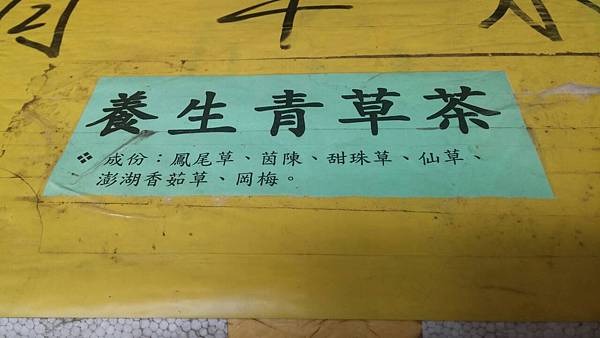 養生青草茶
❖ 成份：鳳尾草、茵陳、甜珠草、仙草、
澎湖香茹草、岡梅。